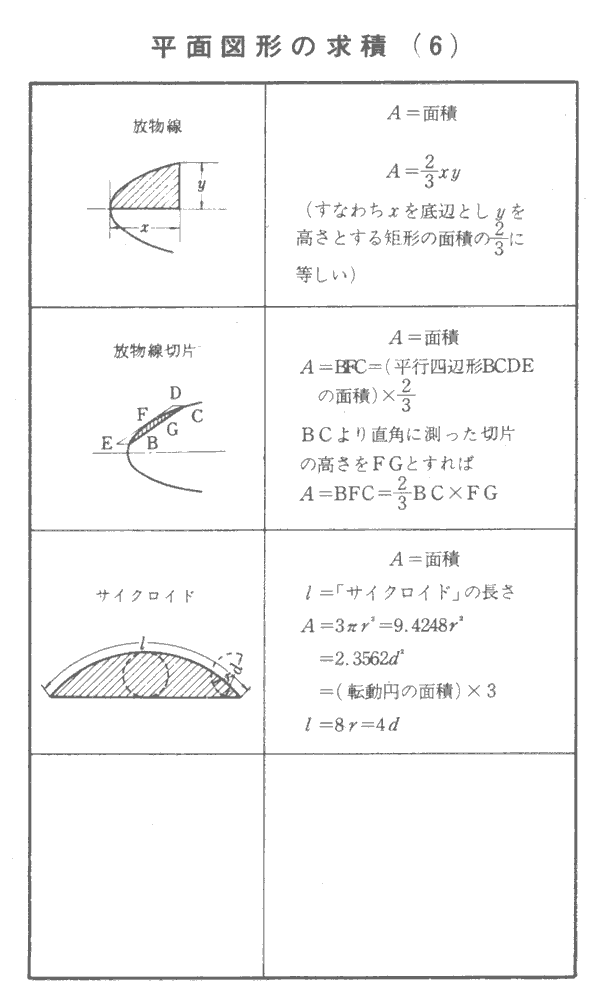 平面図形の求積（6）
放物線
y
x
A＝面積
A＝2/3xy
（すなわちxを底辺としyを
高さとする矩形の面積の2/3に
等しい）
放物線切片
D
F
C
G
E
B
A＝面積
A＝BFC＝（平行四辺形BCDE
の面積）×2/3
BCより直角に測った切片
の高さをFGとすれば
A＝BFC＝2/3BC×FG
サイクロイド
l
d
A＝面積
l＝「サイクロイド」の長さ
A＝3πr²＝9.4248r²
＝2.3562d²
＝（転動円の面積）×3
l＝8r＝4d